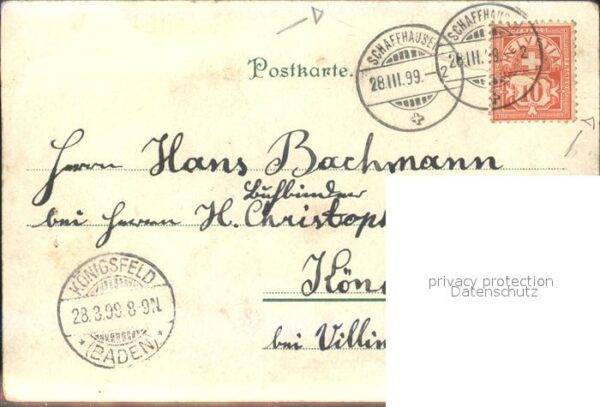 SCHAFFHAUSEN
28.III.99.–2
SCHAFFHAUS
28.III.99.–2
HELVETIA
10
Postkarte.
Herrn Hans Bachmann
Buchbinder
bei Herrn H. Christoph
Köni
bei Villin
KÖNIGSFELD
28.3.99.8-9N.
(BADEN)
privacy protection
Datenschutz